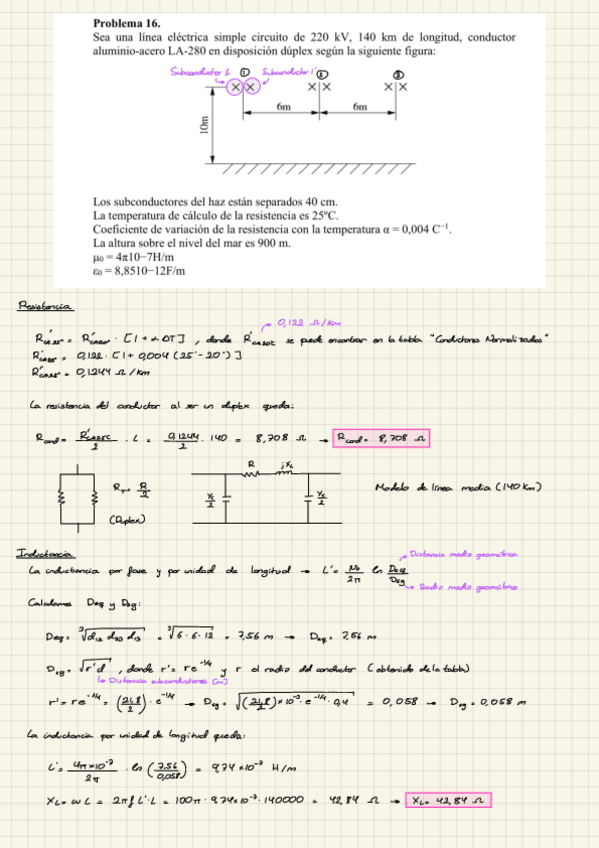 Problema 16.
Sea una línea eléctrica simple circuito de 220 kV, 140 km de longitud, conductor
aluminio-acero LA-280 en disposición dúplex según la siguiente figura:
Subconductor 1 ① Subconductor 1' ② ③
6m 6m
10m
Los subconductores del haz están separados 40 cm.
La temperatura de cálculo de la resistencia es 25ºC.
Coeficiente de variación de la resistencia con la temperatura α = 0,004 C⁻¹.
La altura sobre el nivel del mar es 900 m.
μ₀ = 4π10−7H/m
ε₀ = 8,8510−12F/m
Resistencia
0,122 Ω/km
R'ca25º = R'ca20º · [1 + α ΔT] , donde R'ca20ºC se puede encontrar en la tabla "Conductores Normalizados"
R'ca25º = 0,122 · [1 + 0,004 (25º - 20º)]
R'ca25º = 0,1244 Ω/km
La resistencia del conductor al ser un duplex queda:
Rcond = R'ca25ºC/2 · L = 0,1244/2 · 140 = 8,708 Ω → Rcond = 8,708 Ω
R jXL
RT = R/2
(Duplex)
Yc/2 Yc/2
Modelo de línea media (140 Km)
Inductancia
Distancia media geométrica
La inductancia por fase y por unidad de longitud → L' = μ₀/2π ln Deq/Dsg
Radio medio geométrico
Calculamos Deq y Dsg:
Deq = ∛d12 d23 d13 = ∛6 · 6 · 12 = 7,56 m → Deq = 7,56 m
Dsg = √r'd , donde r' = re^-1/4 y r el radio del conductor (obtenido de la tabla)
Distancia subconductores (m)
r' = re^-1/4 = (21,8/2) · e^-1/4 → Dsg = √(21,8/2)×10⁻³ · e^-1/4 · 0,4 = 0,058 → Dsg = 0,058 m
La inductancia por unidad de longitud queda:
L' = 4π×10⁻⁷/2π · ln (7,56/0,058) = 9,74×10⁻⁷ H/m
XL = ωL = 2πf L'·L = 100π · 9,74×10⁻⁷ · 140000 = 42,84 Ω → XL = 42,84 Ω